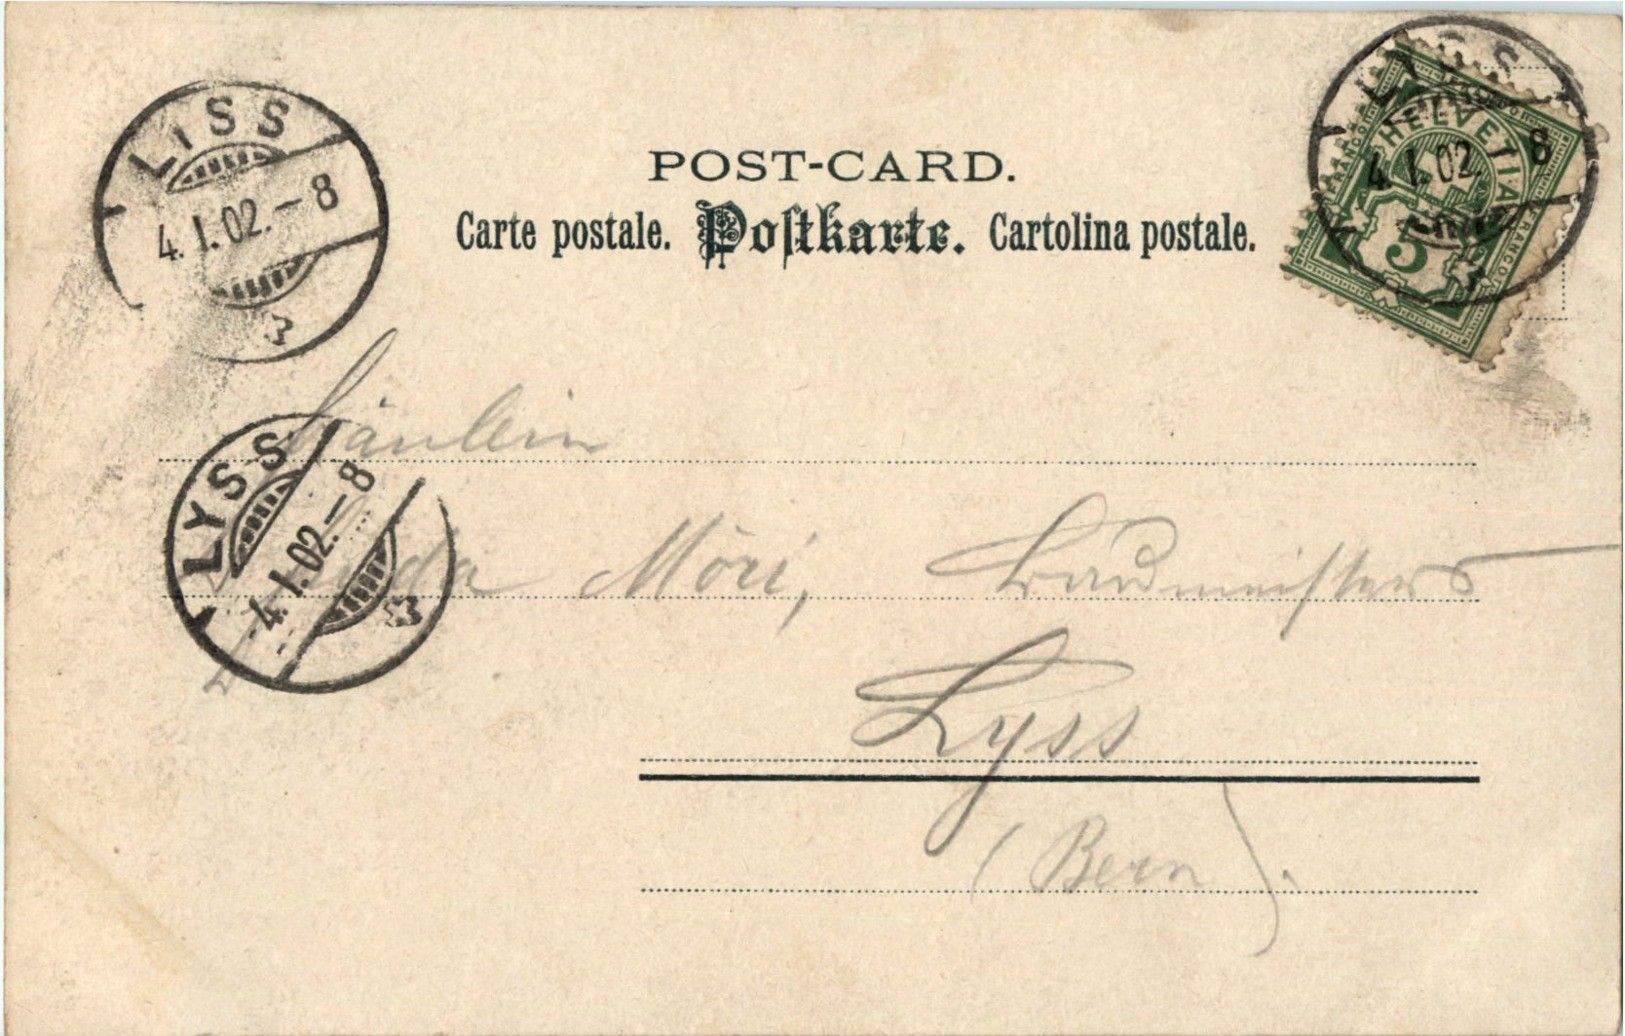 LYSS
4. I. 02. – 8
POST-CARD.
Carte postale. Postkarte. Cartolina postale.
HELVETIA
FRANCO
FRANCO
5
LYSS
4. I. 02. 8
Fräulein
LYSS
4. I. 02. – 8
Möri,
Lyss
(Bern).